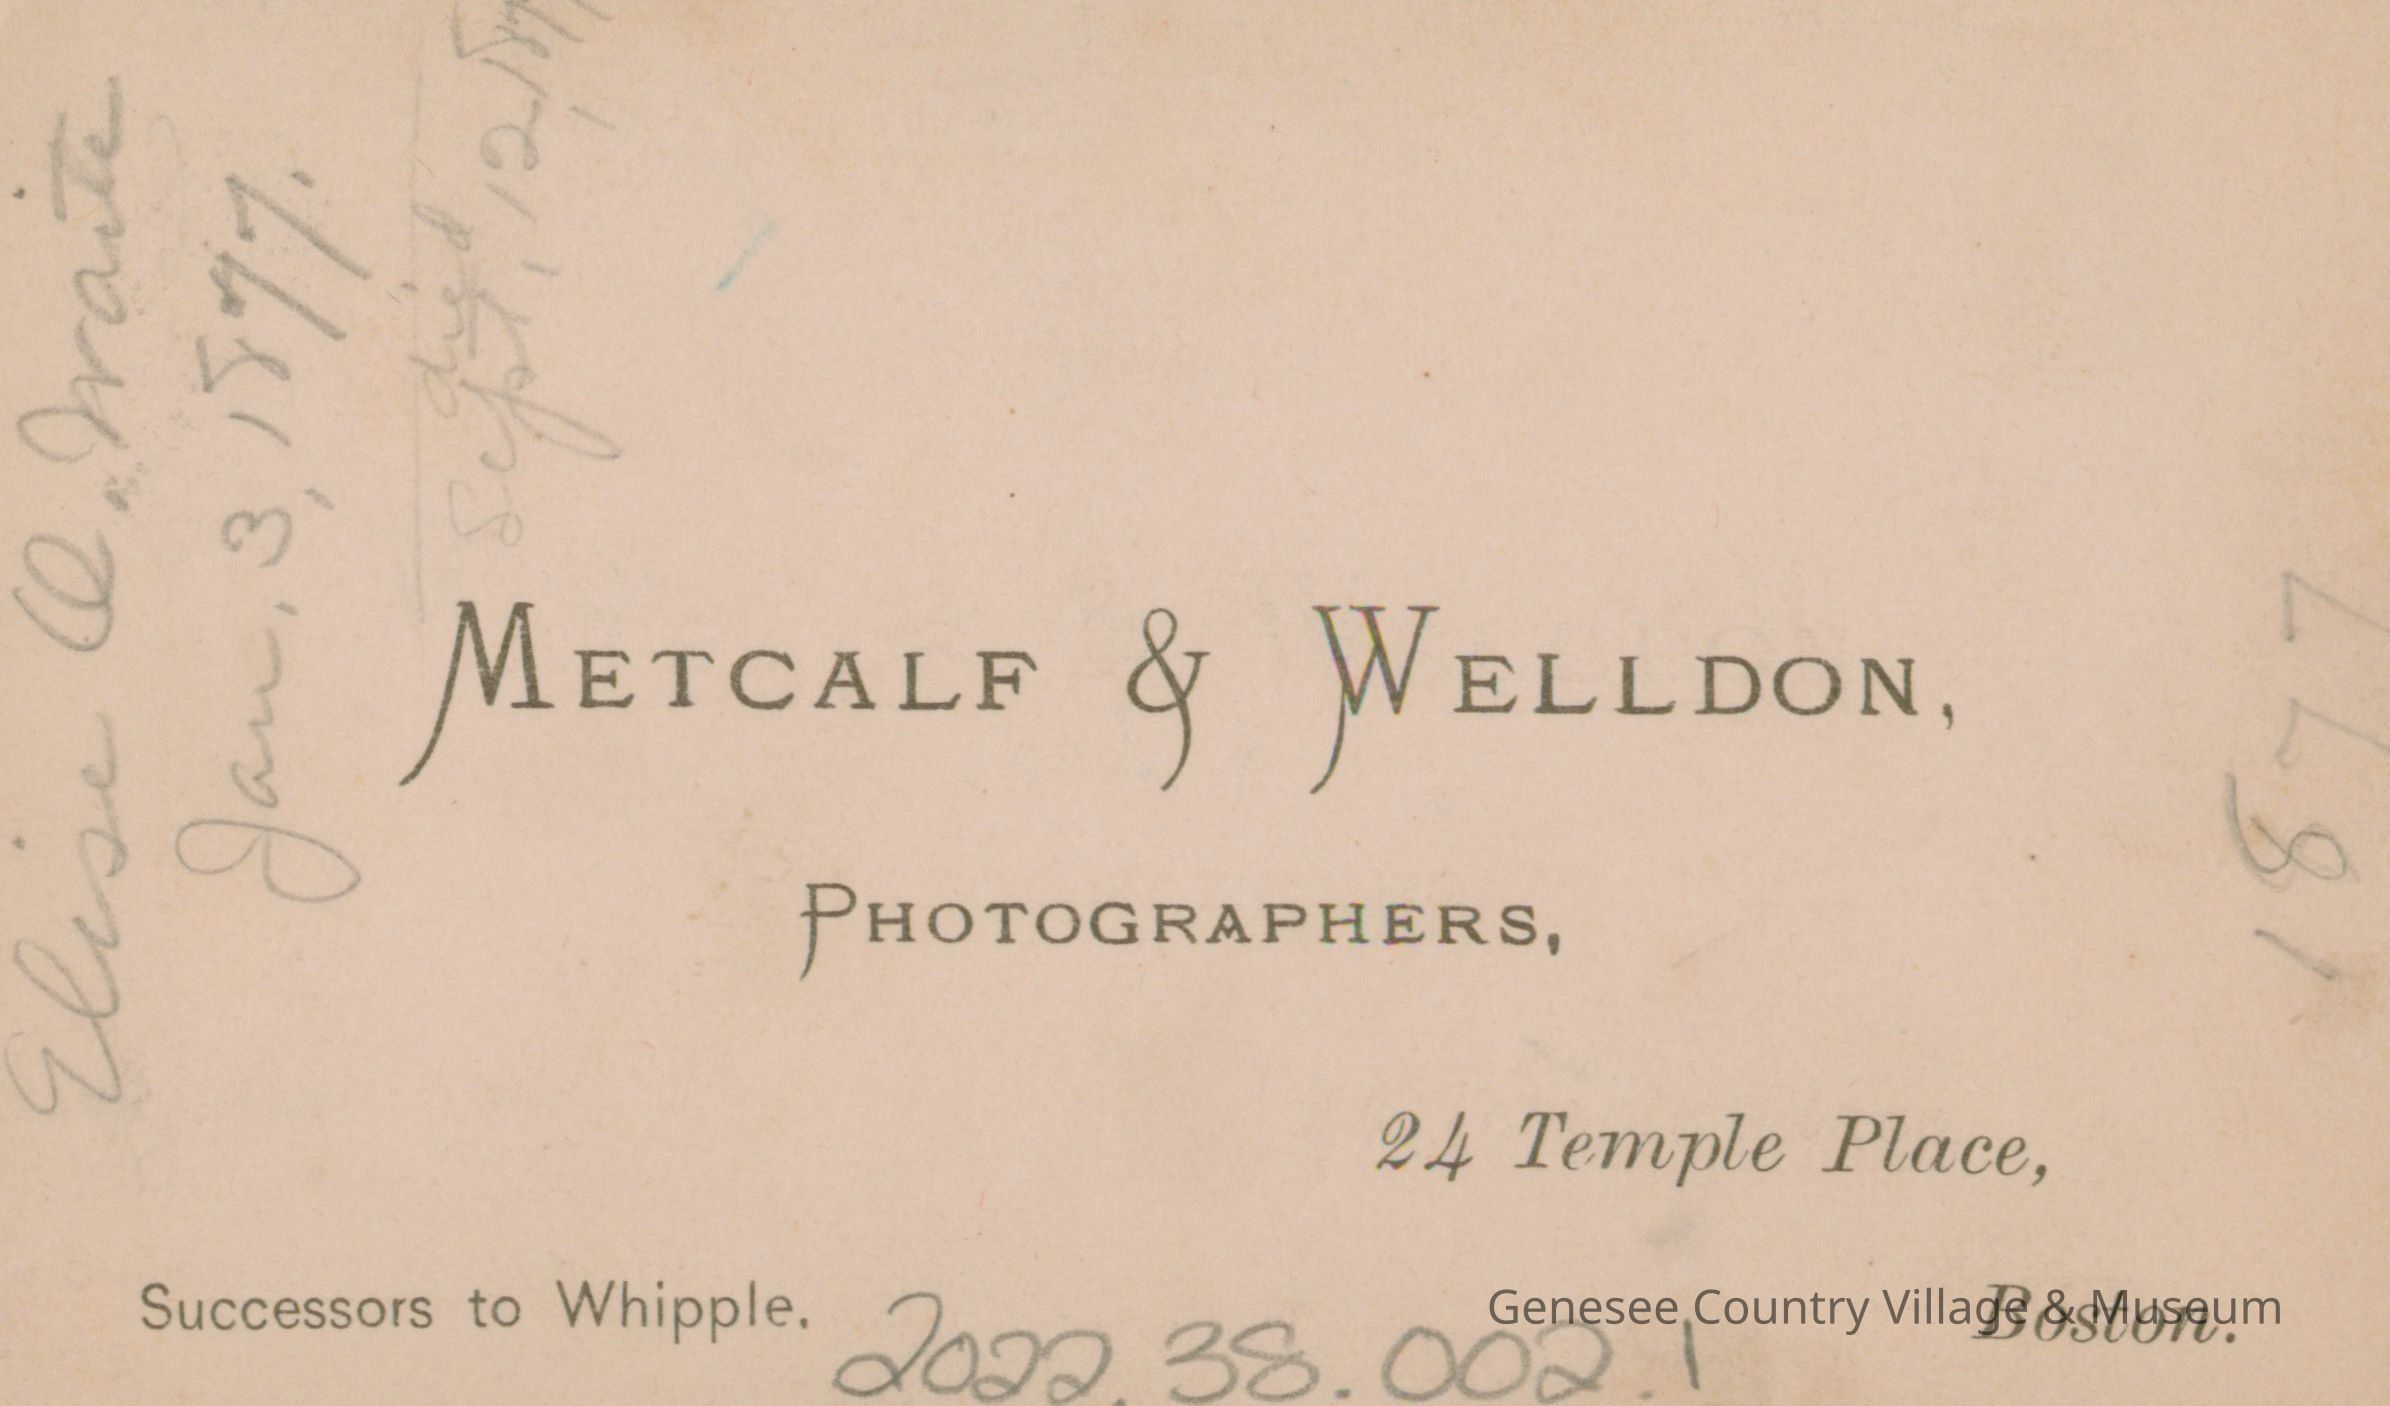 Elise A. Waite
Jan. 3, 1877.
died
Sept, 12, 187
METCALF & WELLDON,
PHOTOGRAPHERS,
24 Temple Place,
Boston.
Successors to Whipple.
1877
2022.38.002.1
Genesee Country Village & Museum